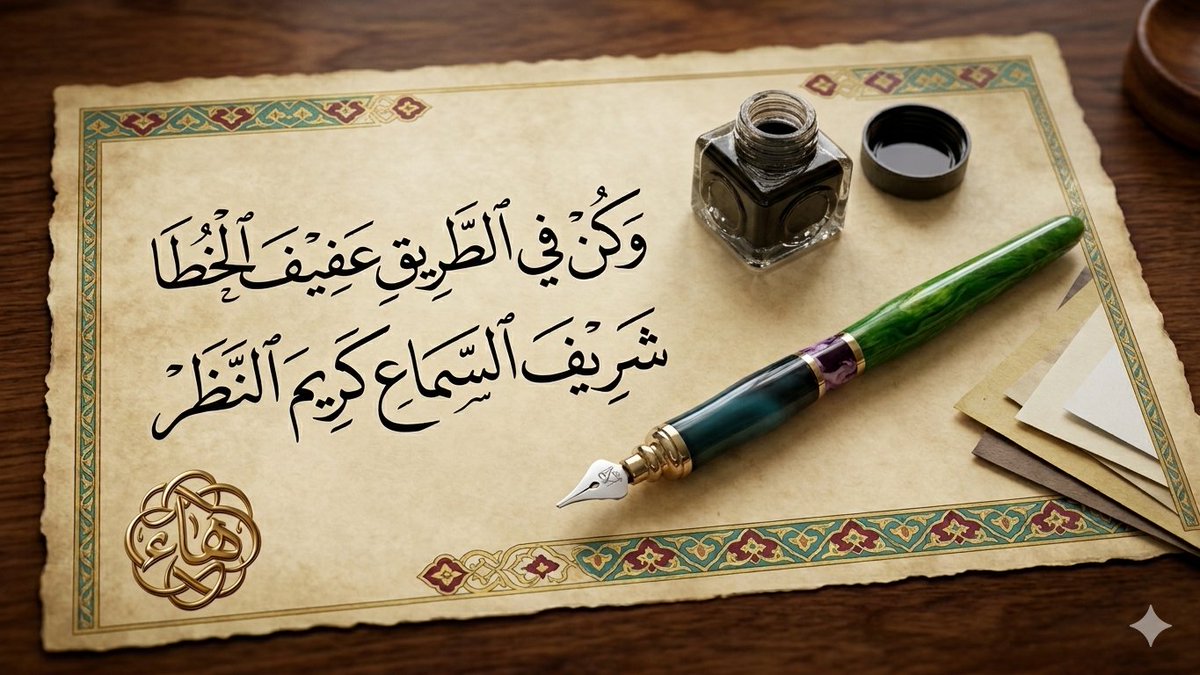 وَكُنْ فِي ٱلطَّرِيقِ عَفِيْفَ ٱلْخُطَا
شَرِيْفَ ٱلسَّمَاعِ كَرِيمَ ٱلنَّظَرْ
هاء